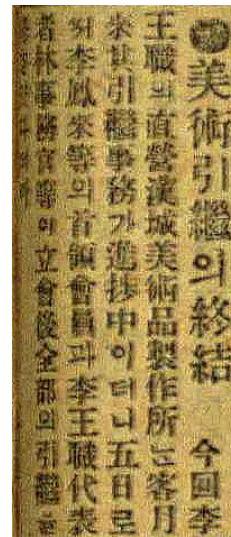 美術引繼의終結 今回李
王職의直營漢城美術品製作所는客月
來其引繼事務가進捗中이더니五日로
써李鳳來等의首領會員과李王職代表
者林事務官等이立會後全部의引繼를